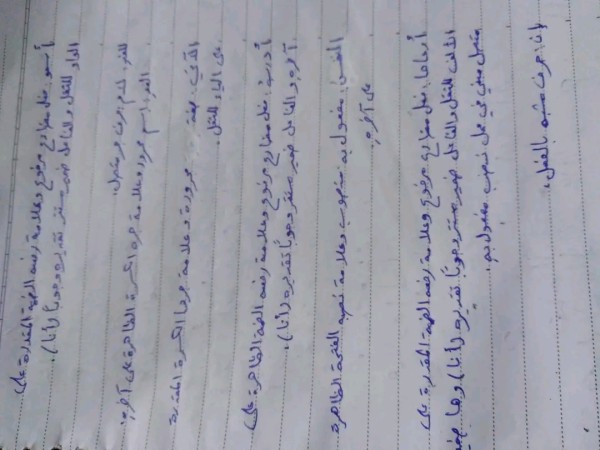 أسمو: فعل مضارع مرفوع وعلامة رفعه الضمة المقدرة على
الواو للثقل والفاعل ضمير مستتر تقديره وجوباً (أنا).
اللام حرف جر متصل.
اسم مجرور وعلامة جره الكسرة الظاهرة على آخره.
الآتي: مجرورة وعلامة جرها الكسرة المقدرة
على الياء للثقل.
أدرسُ: فعل مضارع مرفوع وعلامة رفعه الضمة الظاهرة على
آخره والفاعل ضمير مستتر وجوباً تقديره (أنا).
مفعول به منصوب وعلامة نصبه الفتحة الظاهرة
على آخره.
أرعاها: فعل مضارع مرفوع وعلامة رفعه الضمة المقدرة على
الألف للثقل والفاعل ضمير مستتر وجوباً تقديره (أنا) وها ضمير
متصل مبني في محل نصب مفعول به.
إنّ: حرف مشبه بالفعل.